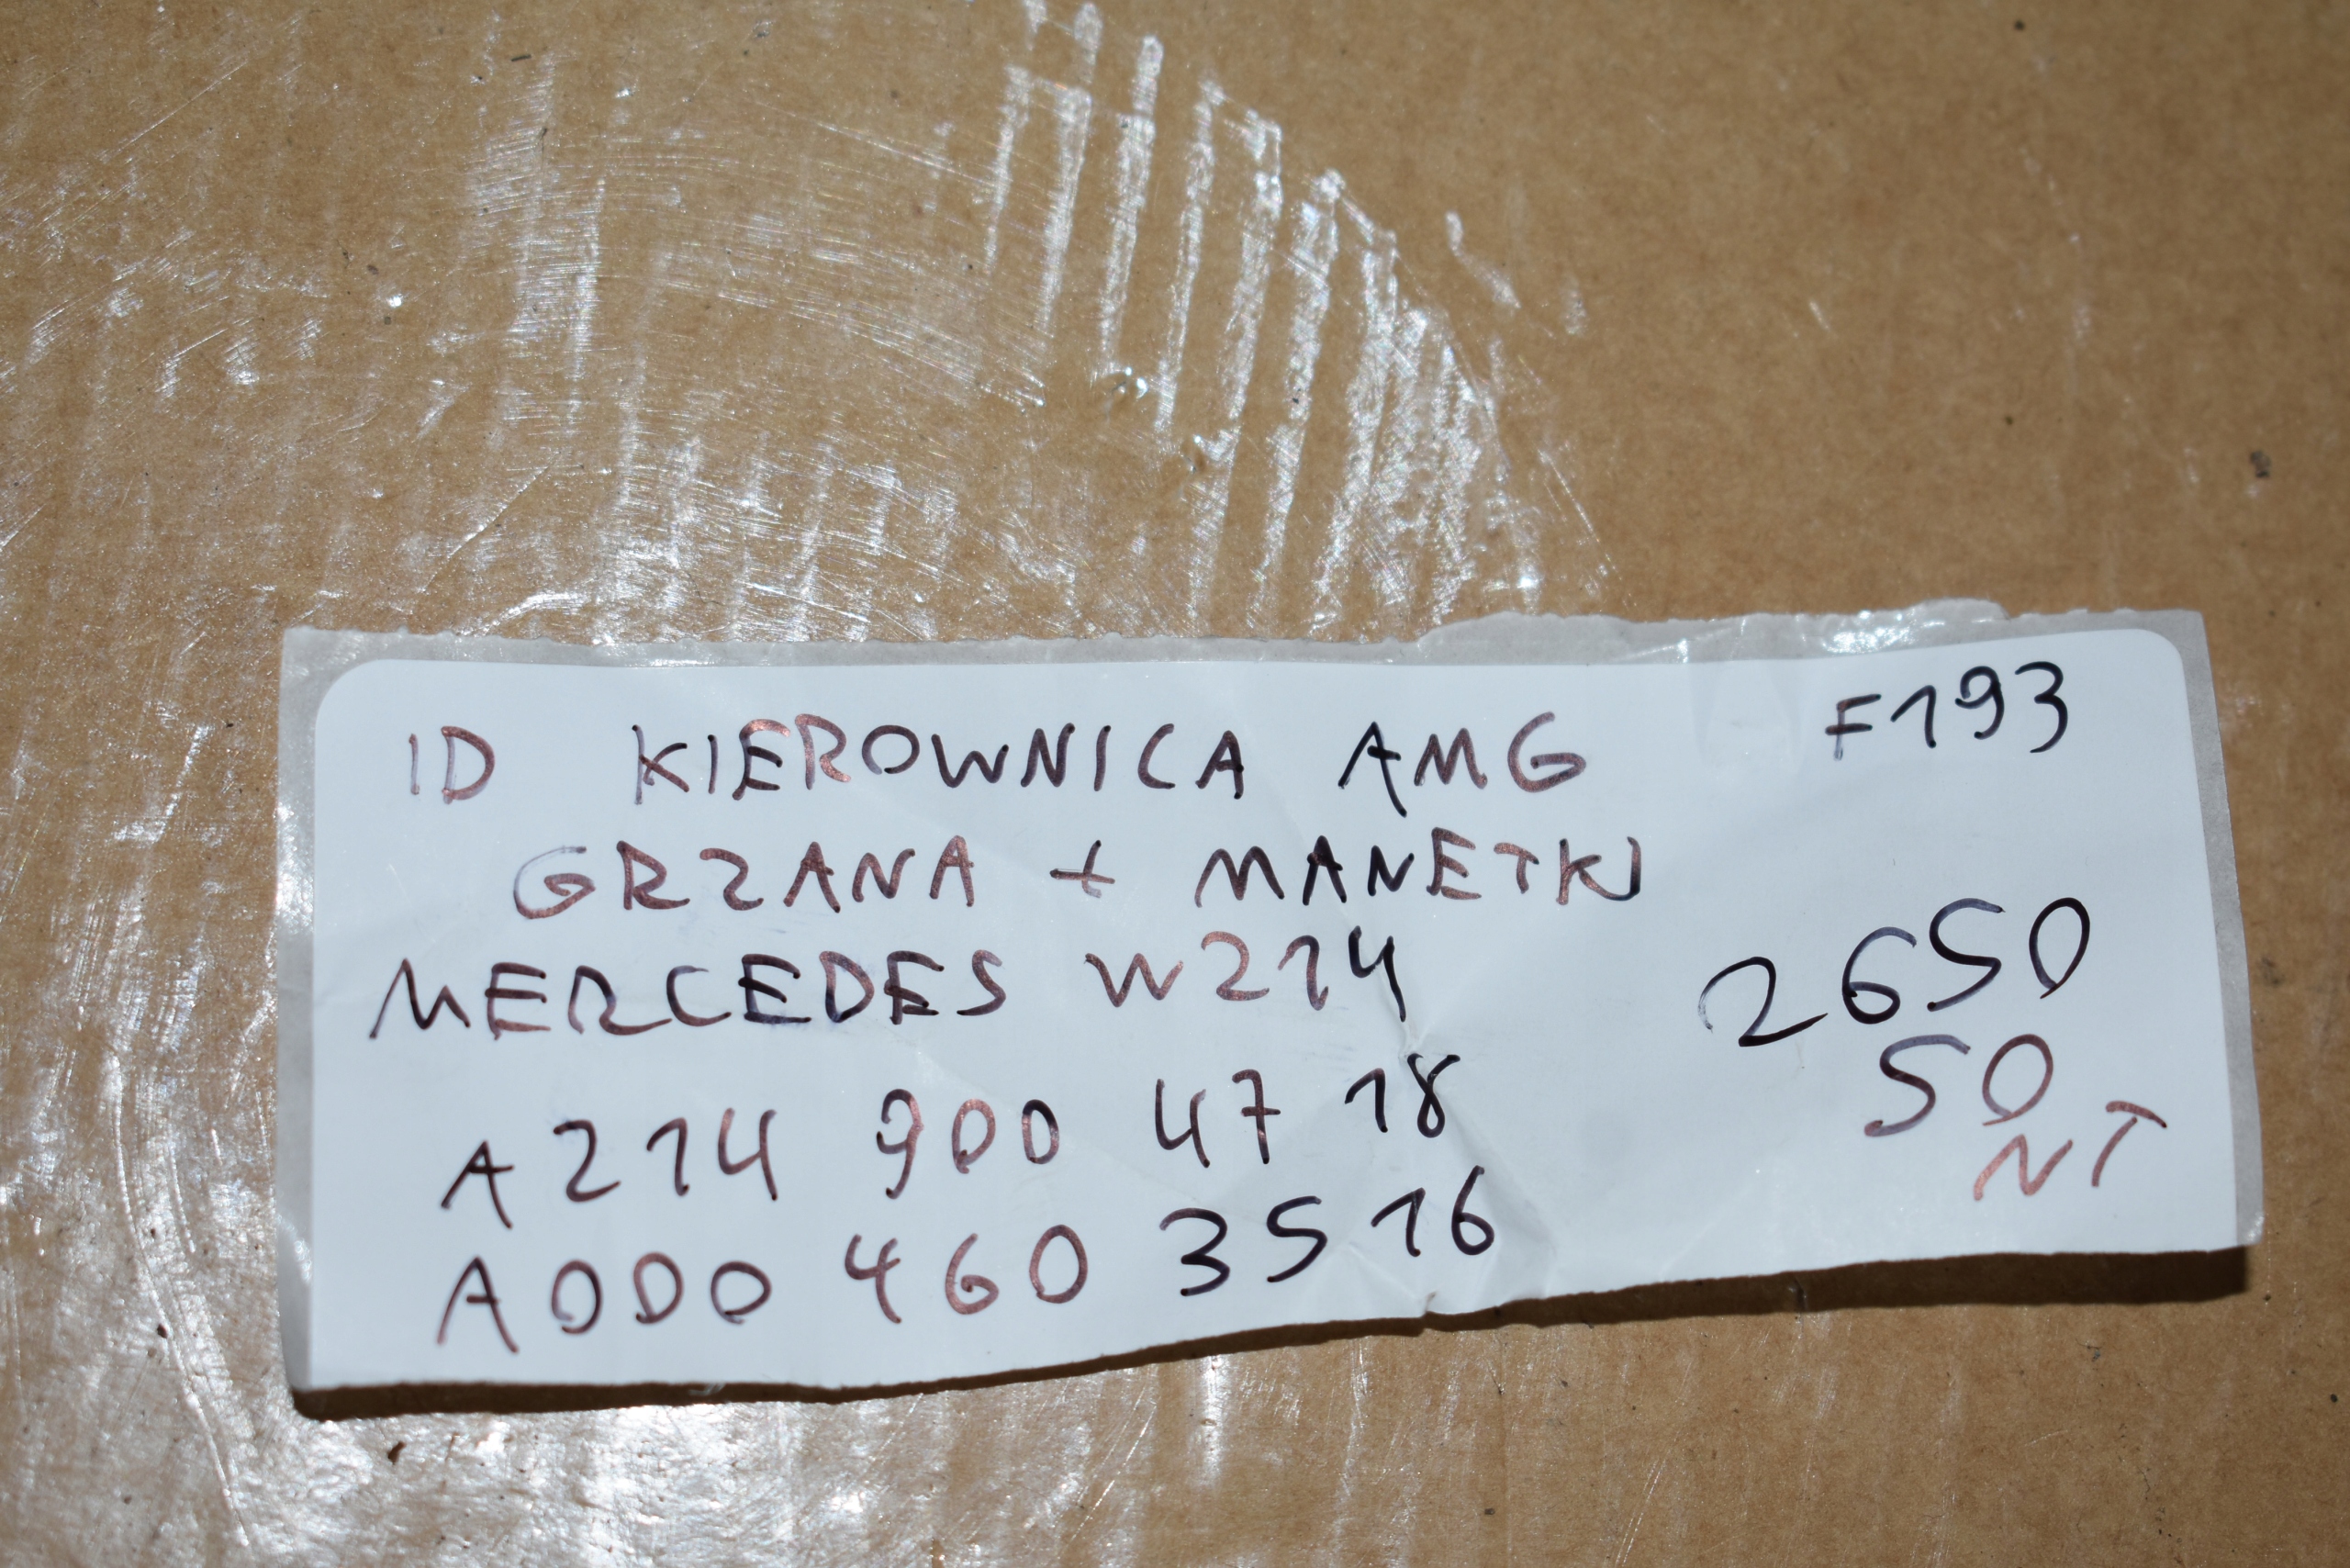 ID KIEROWNICA AMG F193
GRZANA + MANETKI
MERCEDES W214 2650
A214 900 47 18 50
NT
A000 460 35 16